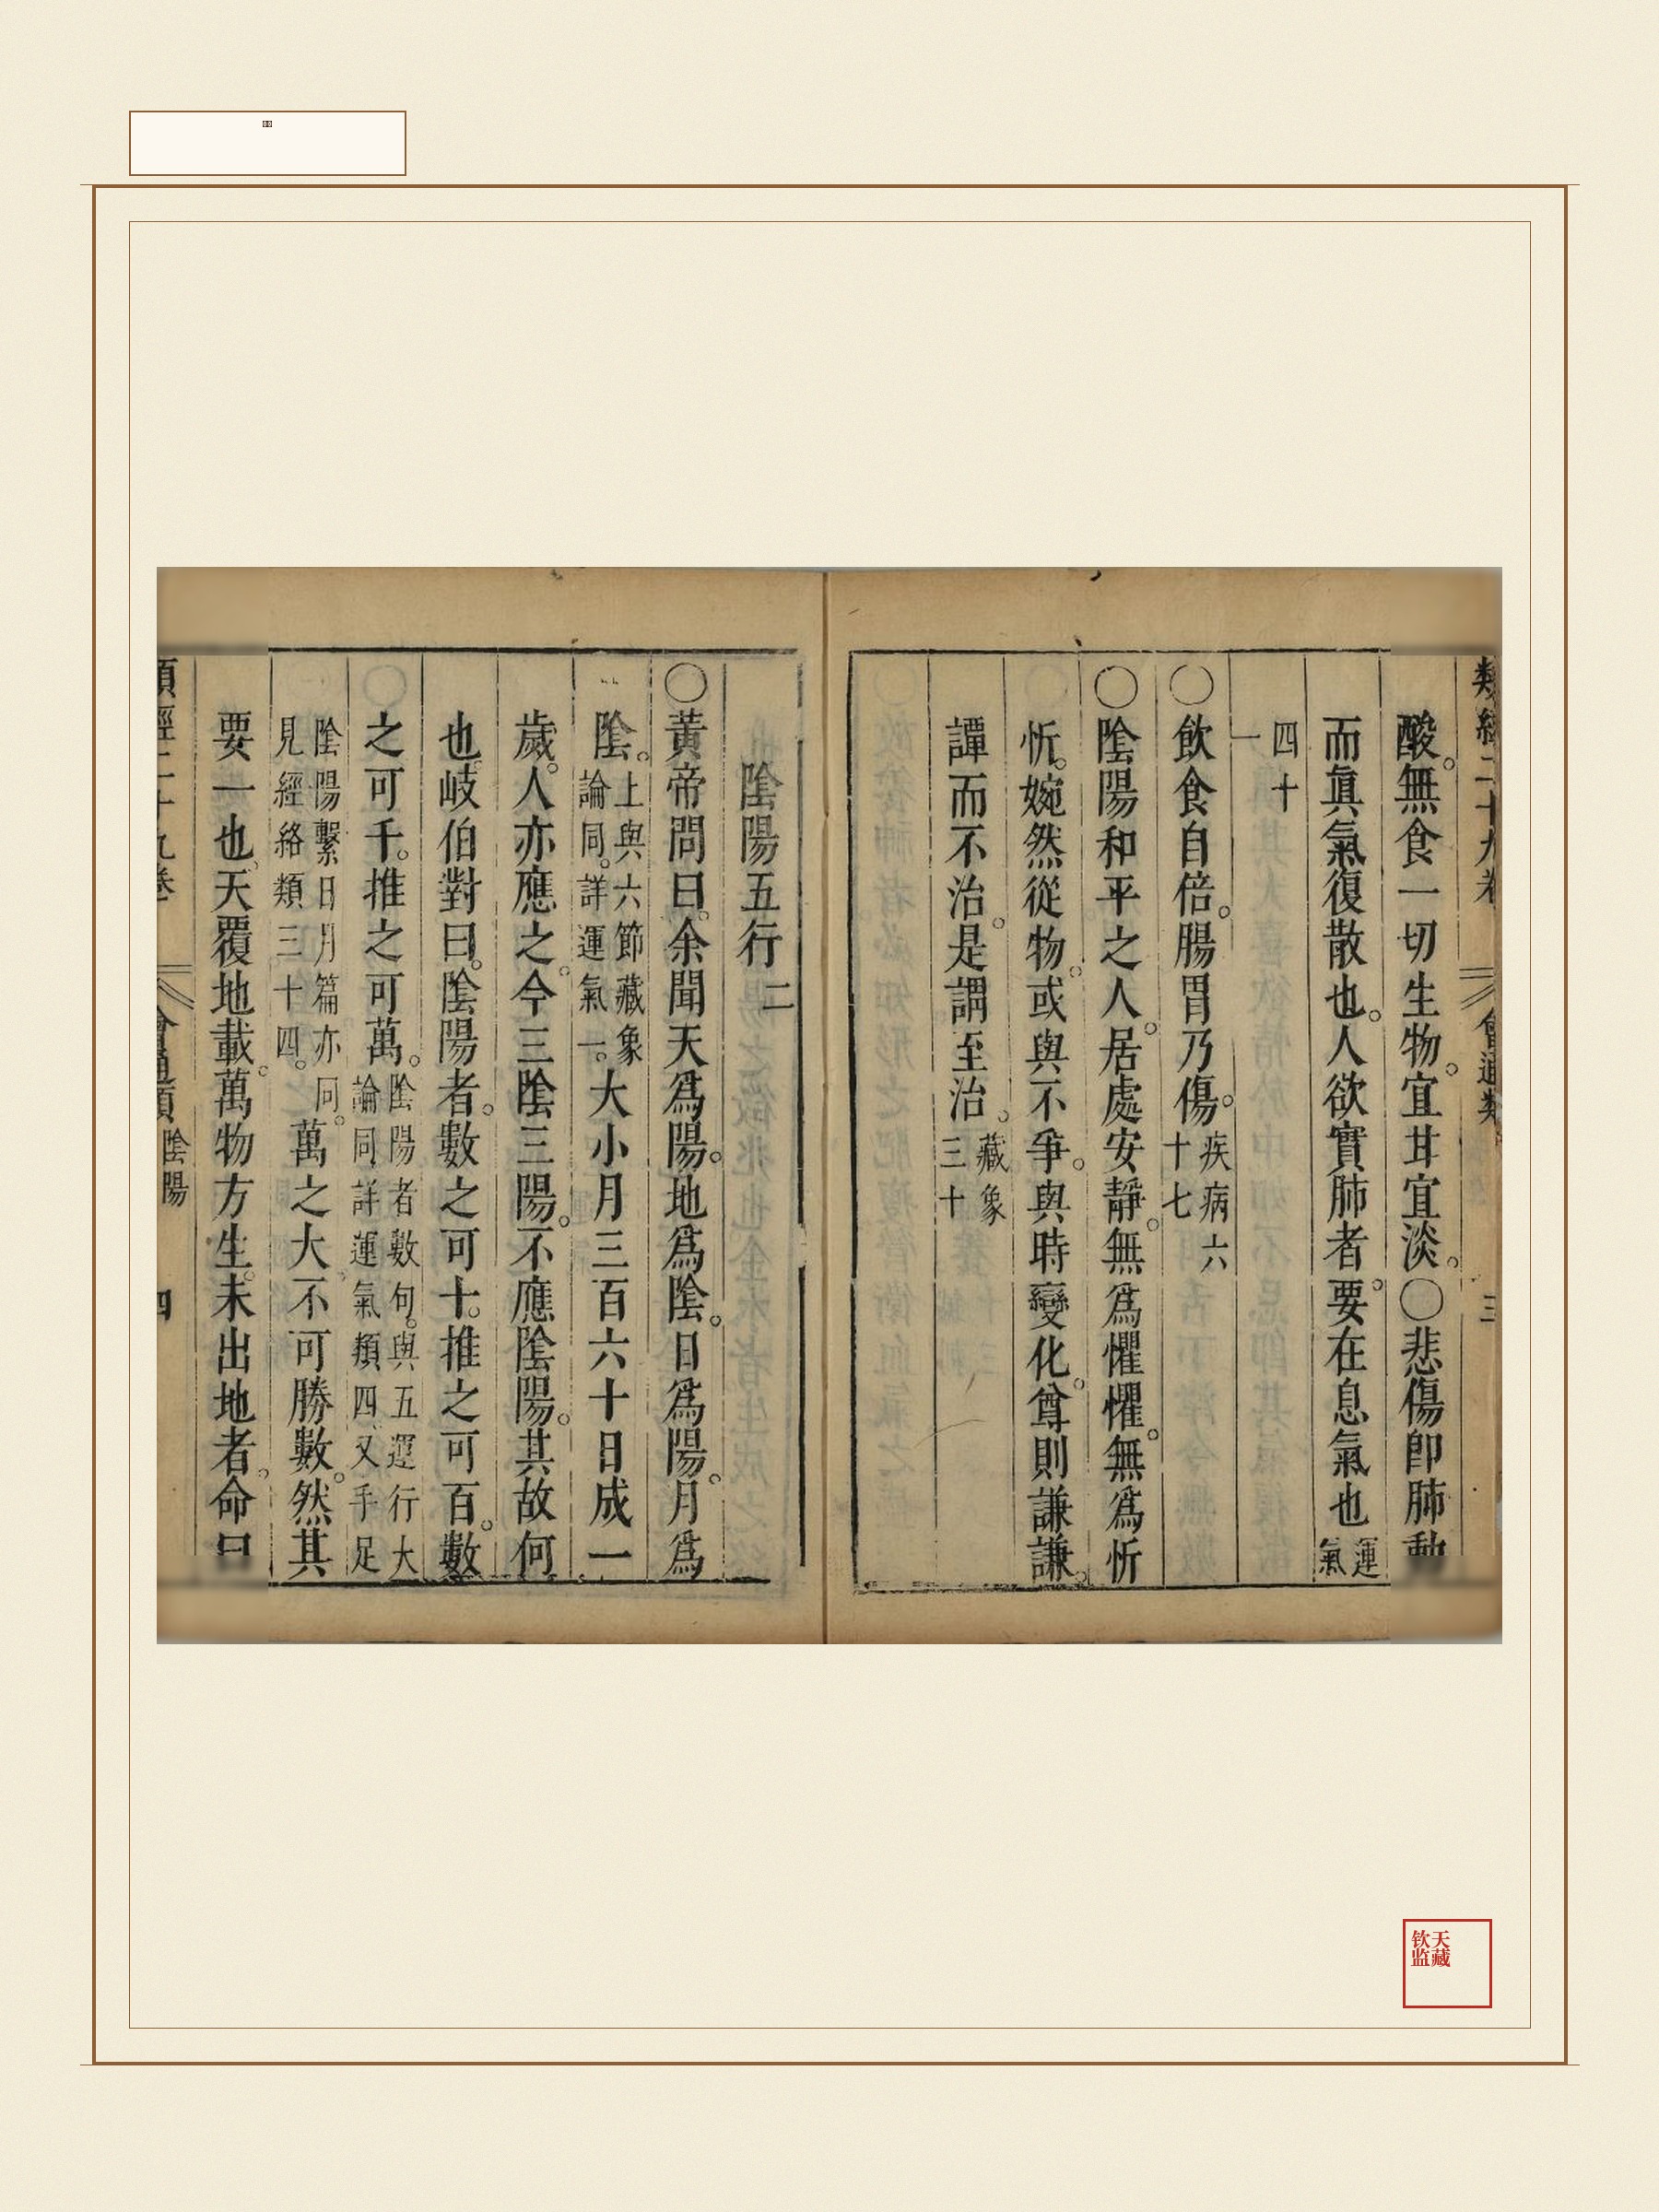 類經二十九卷 會通類 三
酸。無食一切生物。宜甘宜淡。○悲傷卽肺動
而眞氣復散也。人欲實肺者。要在息氣也運氣
四十一
○飲食自倍。腸胃乃傷。疾病六十七
○陰陽和平之人。居處安靜。無爲懼懼。無爲忻
忻。婉然從物。或與不爭。與時變化。尊則謙謙。
譚而不治。是謂至治。藏象三十
陰陽五行 二
○黃帝問曰。余聞天爲陽。地爲陰。日爲陽。月爲
陰。上與六節藏象論同。詳運氣一。大小月三百六十日成一
歲。人亦應之。今三陰三陽。不應陰陽。其故何
也。岐伯對曰。陰陽者。數之可十。推之可百。數
之可千。推之可萬。陰陽者數句。與五運行大論同。詳運氣類四。又手足
陰陽繫日月篇亦同。見經絡類三十四。萬之大。不可勝數。然其
要一也。天覆地載。萬物方生。未出地者。命曰
類經二十九卷 會通類 陰陽 四
钦天
监藏